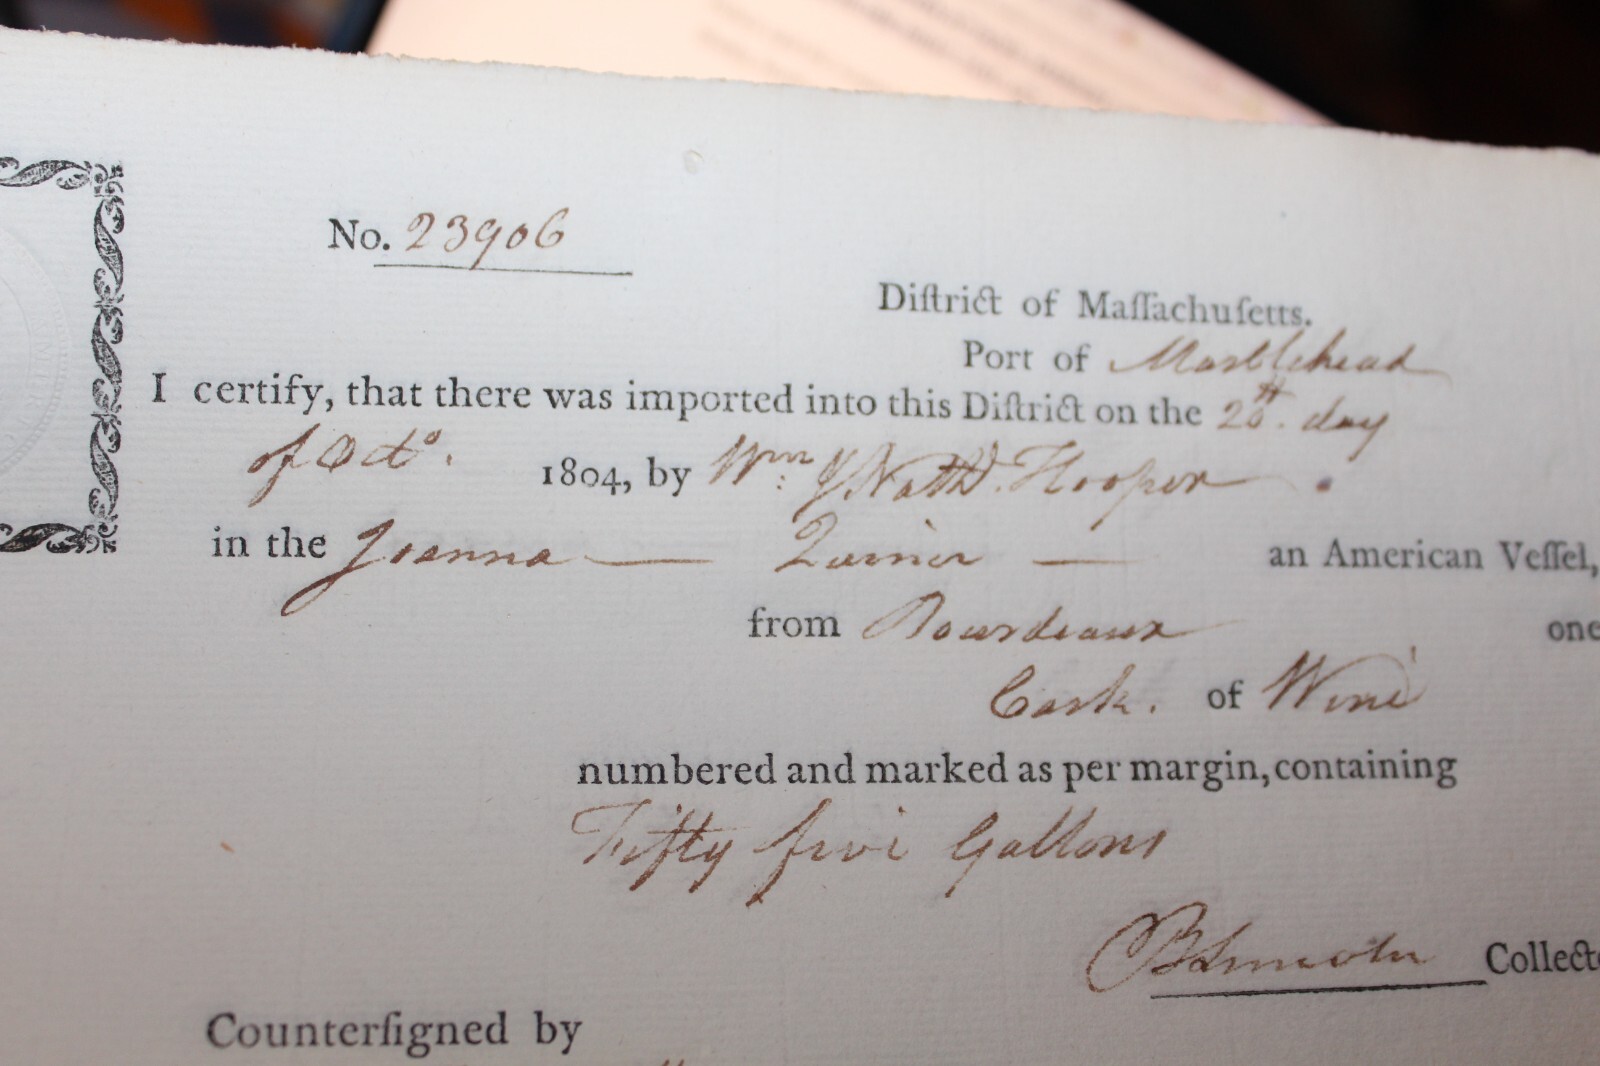 No. 23906
Diſtrict of Maſſachuſetts.
Port of Marblehead
I certify, that there was imported into this Diſtrict on the 20th. day
of Octo. 1804, by Wm: & Nathl. Hooper
in the Joanna — Turner — an American Veſſel,
from Bourdeaux one
Cask. of Wine
numbered and marked as per margin, containing
Fifty five Gallons
BLincoln Collect
Counterſigned by